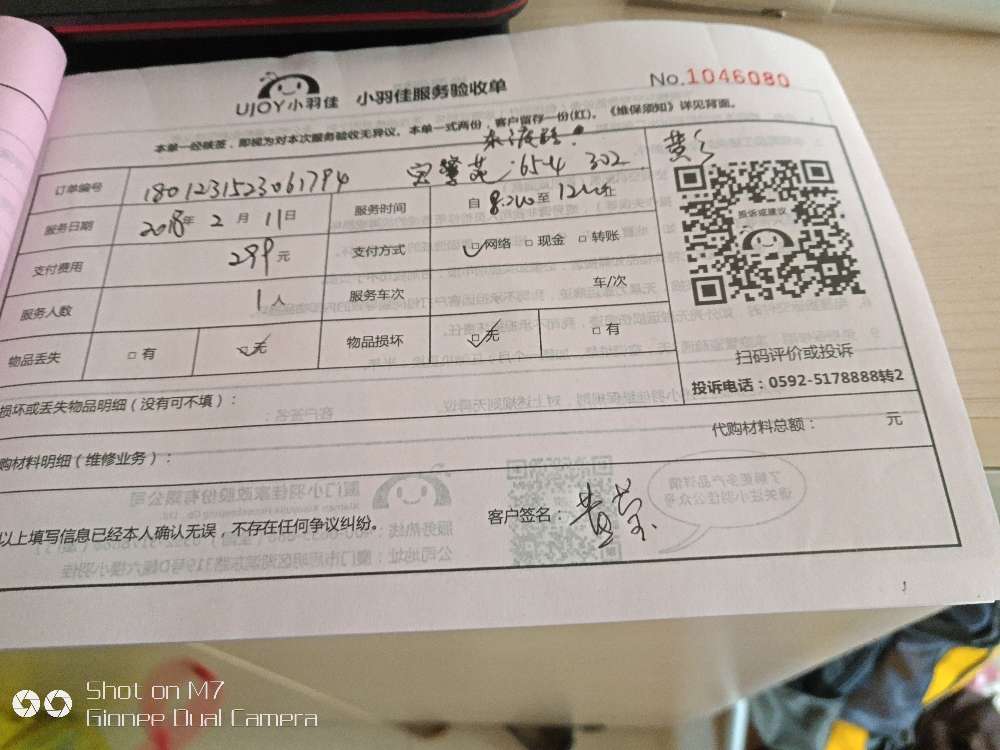 UJOY小羽佳 小羽佳服务验收单 No.1046080
本单一经核签，即视为对本次服务验收无异议。本单一式两份，客户留存一份(红)。《维保须知》详见背面。
订单编号 1801231523061794 654 302
服务日期 2018年 2 月 11日 服务时间 自 8:200至 12
支付费用 299 元 支付方式 □网络 □现金 □转账
服务人数 1人 服务车次 车/次
物品丢失 □有 □无 物品损坏 □无 □有
投诉或建议
扫码评价或投诉
投诉电话：0592-5178888转2
损坏或丢失物品明细（没有可不填）：
代购材料总额： 元
购材料明细（维修业务）：
以上填写信息已经本人确认无误，不存在任何争议纠纷。 客户签名：黄莹
Shot on M7
Gionee Dual Camera